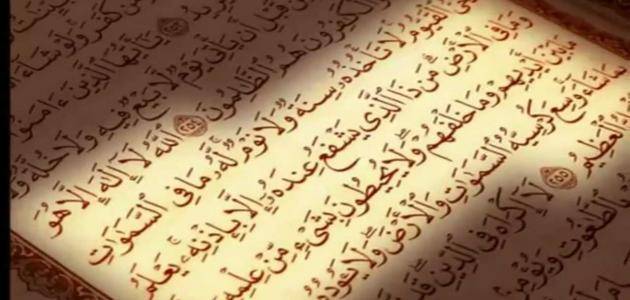 من كَفَرَ وَلَوْ شَاءَ
يَٰٓأَيُّهَا ٱلَّذِينَ ءَامَنُوٓا۟
مِّن قَبْلِ أَن يَأْتِىَ يَوْمٌ لَّا بَيْعٌ فِيهِ وَلَا خُلَّةٌ وَ
ٱلْكَٰفِرُونَ هُمُ ٱلظَّٰلِمُونَ ٢٥٤ ٱللَّهُ لَآ إِلَٰهَ إِلَّا هُوَ
ٱلْقَيُّومُ لَا تَأْخُذُهُۥ سِنَةٌ وَلَا نَوْمٌ لَّهُۥ مَا فِى ٱلسَّمَٰوَٰتِ
وَمَا فِى ٱلْأَرْضِ مَن ذَا ٱلَّذِى يَشْفَعُ عِندَهُۥٓ إِلَّا بِإِذْنِهِۦ يَعْلَمُ
مَا بَيْنَ أَيْدِيهِمْ وَمَا خَلْفَهُمْ وَلَا يُحِيطُونَ بِشَىْءٍ مِّنْ عِلْمِهِۦٓ
شَآءَ وَسِعَ كُرْسِيُّهُ ٱلسَّمَٰوَٰتِ وَٱلْأَرْضَ وَلَا يَـُٔودُهُۥ
ٱلْعَظِيمُ ٢٥٥ لَآ إِكْرَاهَ فِى ٱلدِّينِ قَد
بِٱلطَّٰغُوتِ وَيُؤْمِنۢ